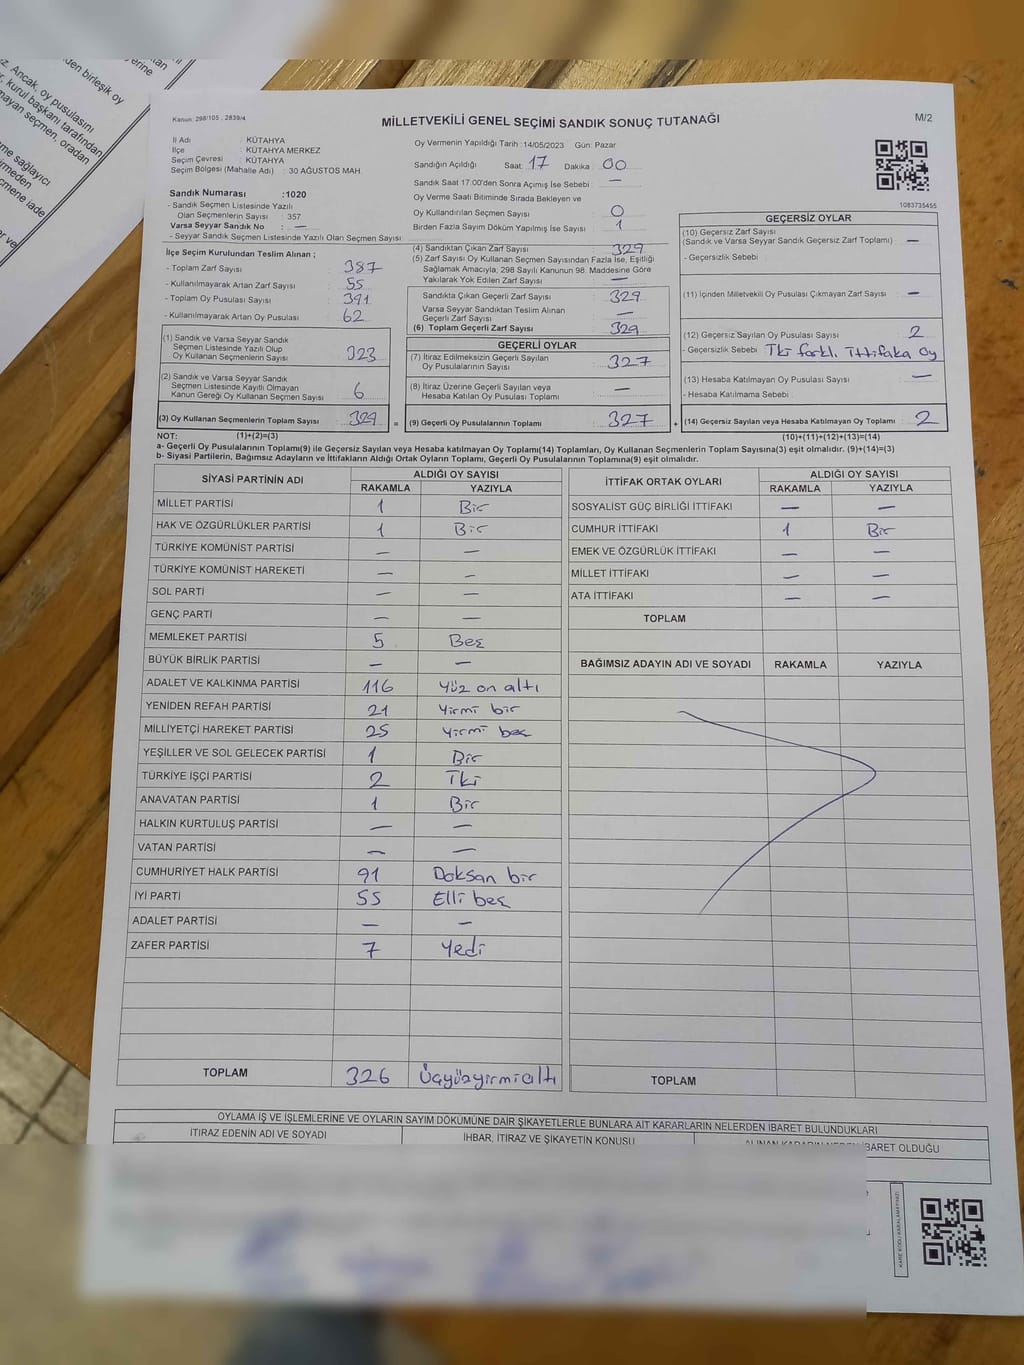 z. Ancak, oy pusulasını
, kurul başkanı tarafından
mayan seçmen, oradan
den birleşik oy
yerine
me sağlayıcı
irmeden
çmene iade
er ve
Kanun: 298/105 , 2839/4
MİLLETVEKİLİ GENEL SEÇİMİ SANDIK SONUÇ TUTANAĞI
M/2
İl Adı : KÜTAHYA
İlçe : KÜTAHYA MERKEZ
Seçim Çevresi : KÜTAHYA
Seçim Bölgesi (Mahalle Adı) : 30 AĞUSTOS MAH
Sandık Numarası :1020
- Sandık Seçmen Listesinde Yazılı
Olan Seçmenlerin Sayısı : 357
Varsa Seyyar Sandık No : —
- Seyyar Sandık Seçmen Listesinde Yazılı Olan Seçmen Sayısı :
İlçe Seçim Kurulundan Teslim Alınan ;
- Toplam Zarf Sayısı : 387
- Kullanılmayarak Artan Zarf Sayısı : 55
- Toplam Oy Pusulası Sayısı : 391
- Kullanılmayarak Artan Oy Pusulası : 62
(1) Sandık ve Varsa Seyyar Sandık
Seçmen Listesinde Yazılı Olup
Oy Kullanan Seçmenlerin Sayısı : 323
(2) Sandık ve Varsa Seyyar Sandık
Seçmen Listesinde Kayıtlı Olmayan
Kanun Gereği Oy Kullanan Seçmen Sayısı : 6
(3) Oy Kullanan Seçmenlerin Toplam Sayısı : 329 =
Oy Vermenin Yapıldığı Tarih :14/05/2023 Gün: Pazar
Sandığın Açıldığı Saat: 17 Dakika : 00
Sandık Saat 17:00'den Sonra Açımış İse Sebebi : —
Oy Verme Saati Bitiminde Sırada Bekleyen ve
Oy Kullandırılan Seçmen Sayısı : 0
Birden Fazla Sayım Döküm Yapılmış İse Sayısı : 1
(4) Sandıktan Çıkan Zarf Sayısı : 329
(5) Zarf Sayısı Oy Kullanan Seçmen Sayısından Fazla İse, Eşitliği
Sağlamak Amacıyla; 298 Sayılı Kanunun 98. Maddesine Göre
Yakılarak Yok Edilen Zarf Sayısı : —
Sandıkta Çıkan Geçerli Zarf Sayısı : 329
Varsa Seyyar Sandıktan Teslim Alınan
Geçerli Zarf Sayısı : —
(6) Toplam Geçerli Zarf Sayısı : 329
GEÇERLİ OYLAR
(7) İtiraz Edilmeksizin Geçerli Sayılan
Oy Pusulalarının Sayısı : 327
(8) İtiraz Üzerine Geçerli Sayılan veya
Hesaba Katılan Oy Pusulası Toplamı : —
(9) Geçerli Oy Pusulalarının Toplamı : 327 +
1083735455
GEÇERSİZ OYLAR
(10) Geçersiz Zarf Sayısı
(Sandık ve Varsa Seyyar Sandık Geçersiz Zarf Toplamı) : —
- Geçersizlik Sebebi :
(11) İçinden Milletvekili Oy Pusulası Çıkmayan Zarf Sayısı : —
(12) Geçersiz Sayılan Oy Pusulası Sayısı : 2
- Geçersizlik Sebebi : İki farklı ittifaka oy
(13) Hesaba Katılmayan Oy Pusulası Sayısı : —
- Hesaba Katılmama Sebebi :
(14) Geçersiz Sayılan veya Hesaba Katılmayan Oy Toplamı : 2
NOT: (1)+(2)=(3)
(10)+(11)+(12)+(13)=(14)
a- Geçerli Oy Pusulalarının Toplamı(9) ile Geçersiz Sayılan veya Hesaba katılmayan Oy Toplamı(14) Toplamları, Oy Kullanan Seçmenlerin Toplam Sayısına(3) eşit olmalıdır. (9)+(14)=(3)
b- Siyasi Partilerin, Bağımsız Adayların ve İttifakların Aldığı Ortak Oyların Toplamı, Geçerli Oy Pusulalarının Toplamına(9) eşit olmalıdır.
SİYASİ PARTİNİN ADI ALDIĞI OY SAYISI
RAKAMLA YAZIYLA
MİLLET PARTİSİ 1 Bir
HAK VE ÖZGÜRLÜKLER PARTİSİ 1 Bir
TÜRKİYE KOMÜNİST PARTİSİ — —
TÜRKİYE KOMÜNİST HAREKETİ — —
SOL PARTİ — —
GENÇ PARTİ — —
MEMLEKET PARTİSİ 5 Beş
BÜYÜK BİRLİK PARTİSİ — —
ADALET VE KALKINMA PARTİSİ 116 Yüz on altı
YENİDEN REFAH PARTİSİ 21 Yirmi bir
MİLLİYETÇİ HAREKET PARTİSİ 25 Yirmi beş
YEŞİLLER VE SOL GELECEK PARTİSİ 1 Bir
TÜRKİYE İŞÇİ PARTİSİ 2 İki
ANAVATAN PARTİSİ 1 Bir
HALKIN KURTULUŞ PARTİSİ — —
VATAN PARTİSİ — —
CUMHURİYET HALK PARTİSİ 91 Doksan bir
İYİ PARTİ 55 Elli beş
ADALET PARTİSİ — —
ZAFER PARTİSİ 7 Yedi
TOPLAM 326 Üçyüzyirmialtı
İTTİFAK ORTAK OYLARI ALDIĞI OY SAYISI
RAKAMLA YAZIYLA
SOSYALİST GÜÇ BİRLİĞİ İTTİFAKI — —
CUMHUR İTTİFAKI 1 Bir
EMEK VE ÖZGÜRLÜK İTTİFAKI — —
MİLLET İTTİFAKI — —
ATA İTTİFAKI — —
TOPLAM
BAĞIMSIZ ADAYIN ADI VE SOYADI RAKAMLA YAZIYLA
TOPLAM
OYLAMA İŞ VE İŞLEMLERİNE VE OYLARIN SAYIM DÖKÜMÜNE DAİR ŞİKAYETLERLE BUNLARA AİT KARARLARIN NELERDEN İBARET BULUNDUKLARI
İTİRAZ EDENİN ADI VE SOYADI İHBAR, İTİRAZ VE ŞİKAYETİN KONUSU ALINAN KARARIN NEDEN İBARET OLDUĞU
KARE KODU KARALAMAYINIZ!